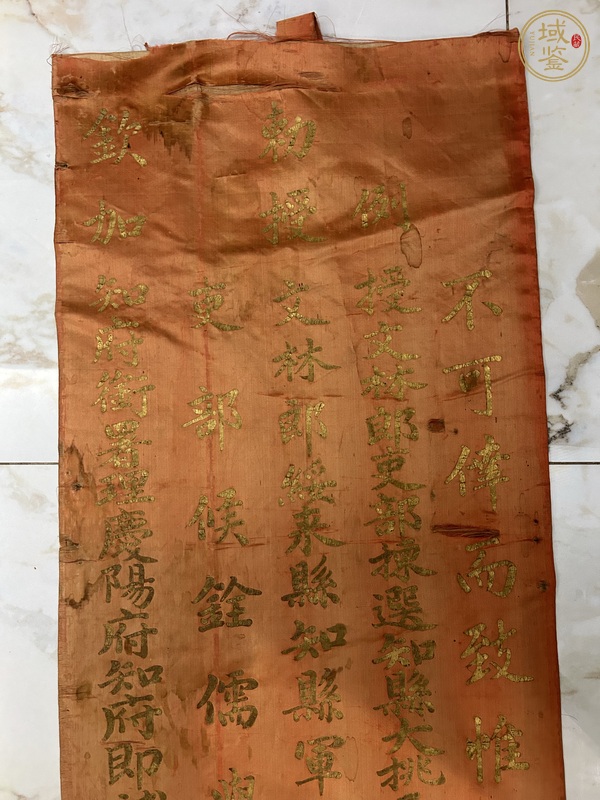 不可倖而致惟
例授文林郎吏部揀選知縣大挑
勅授文林郎綏來縣知縣軍
吏部候銓儒
欽加知府銜署理慶陽府知府即
域鑒